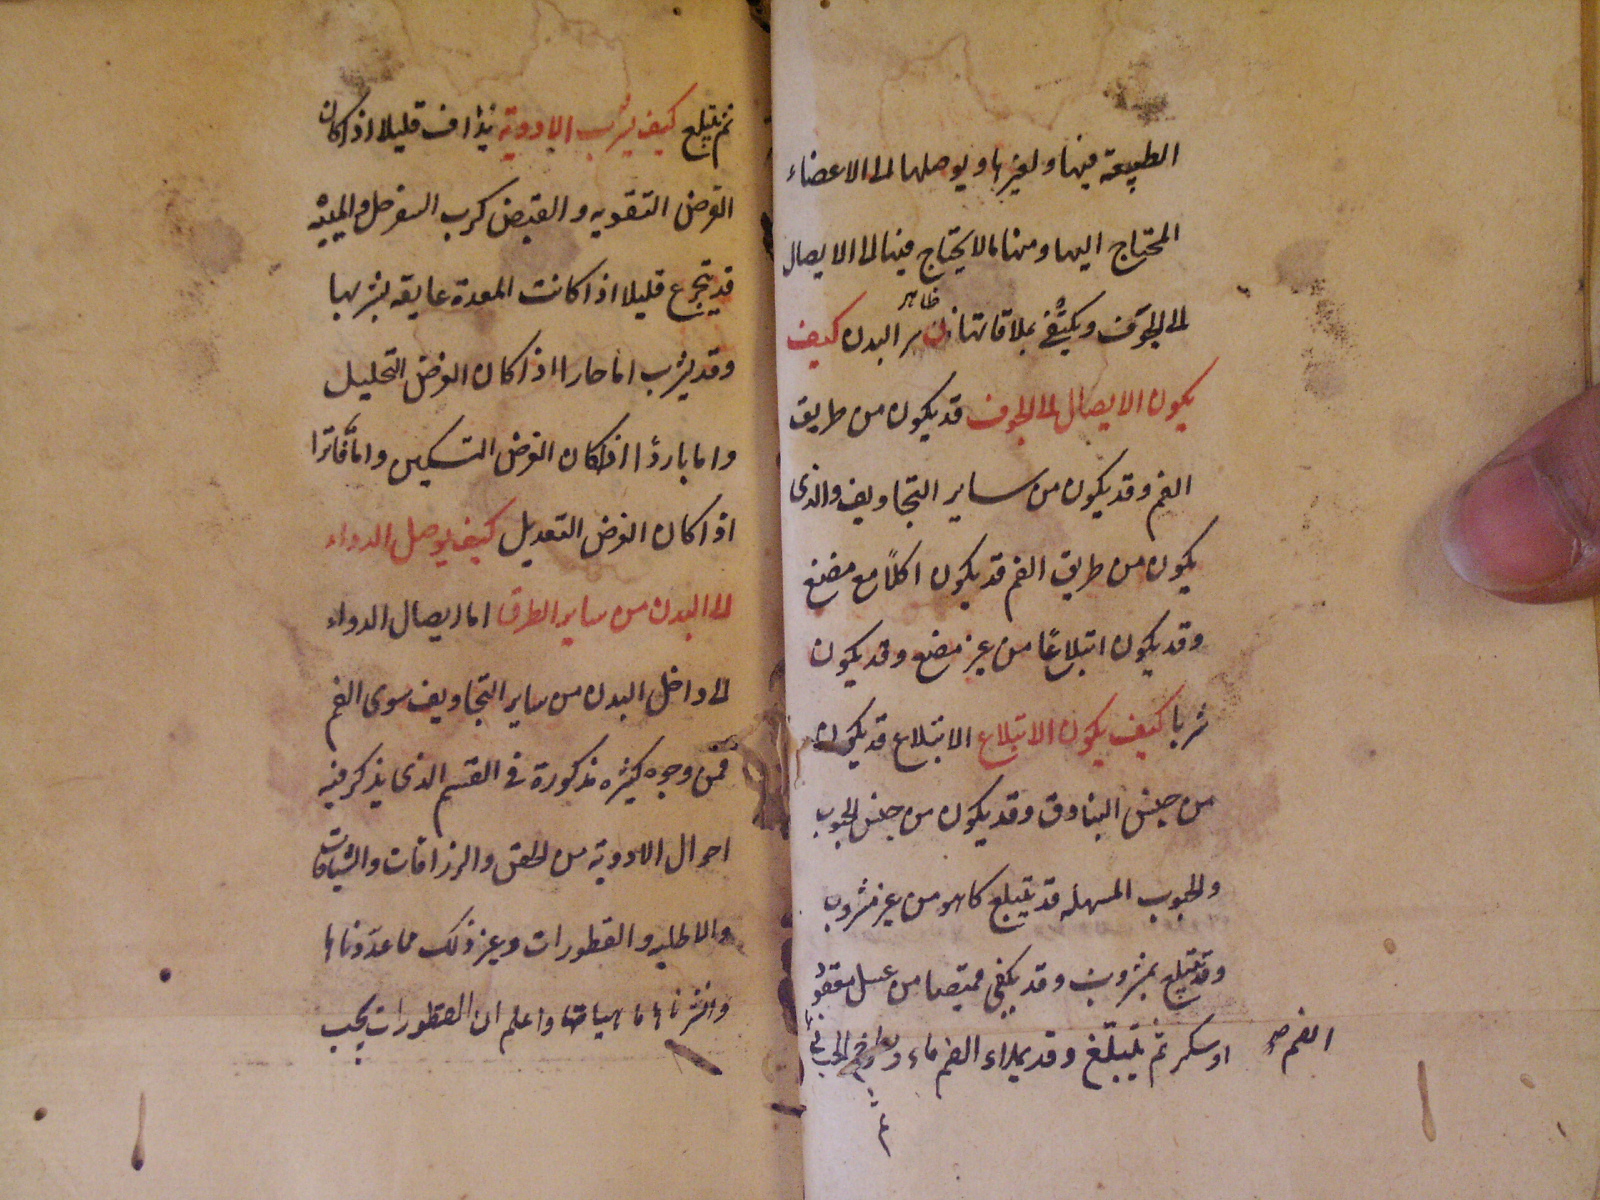 الطبيعة فيها ولغيرها ويوصلها الى الاعضاء
المحتاج اليها ومنها ما لا يحتاج فيها الى الايصال
الى الجوف ويكتفى بملاقاتها ظاهر البدن كيف
يكون الايصال الى الجوف قد يكون من طريق
الفم وقد يكون من ساير التجاويف والذى
يكون من طريق الفم قد يكون اكلاً مع مضغ
وقد يكون ابتلاعًا من غير مضغ وقد يكون
شربا كيف يكون الابتلاع الابتلاع قد يكون
من جنس البنادق وقد يكون من جنس الحبوب
والحبوب المسهلة قد تبتلع كما هو من غير مشروب
وقد تبتلع بمشروب وقد يكفى قميصا من عسل معقود
او سكر ثم يتبلغ وقد يملاء الفم ماء الحب فى
الفم صح
ثم يبتلع كيف يشرب الادوية يذاف قليلا اذا كان
الغرض التقويه والقبض كرب السفرجل والميبه
قد تجرع قليلا اذا كانت المعدة عايقه بشربها
وقد يشرب اما حارا اذا كان الغرض التحليل
واما باردًا اذا كان الغرض التسكين واما فاترا
اذا كان الغرض التعديل كيف يوصل الدواء
الى البدن من ساير الطرق اما ايصال الدواء
الى داخل البدن من ساير التجاويف سوى الفم
فمن وجوه كثيره مذكورة فى القسم الذى يذكر فيه
احوال الادوية من الحقن والزراقات والشيافات
والاطليه والقطورات وغير ذلك مما عددناها
واشرنا ها ما هياتها واعلم ان القطورات يجب